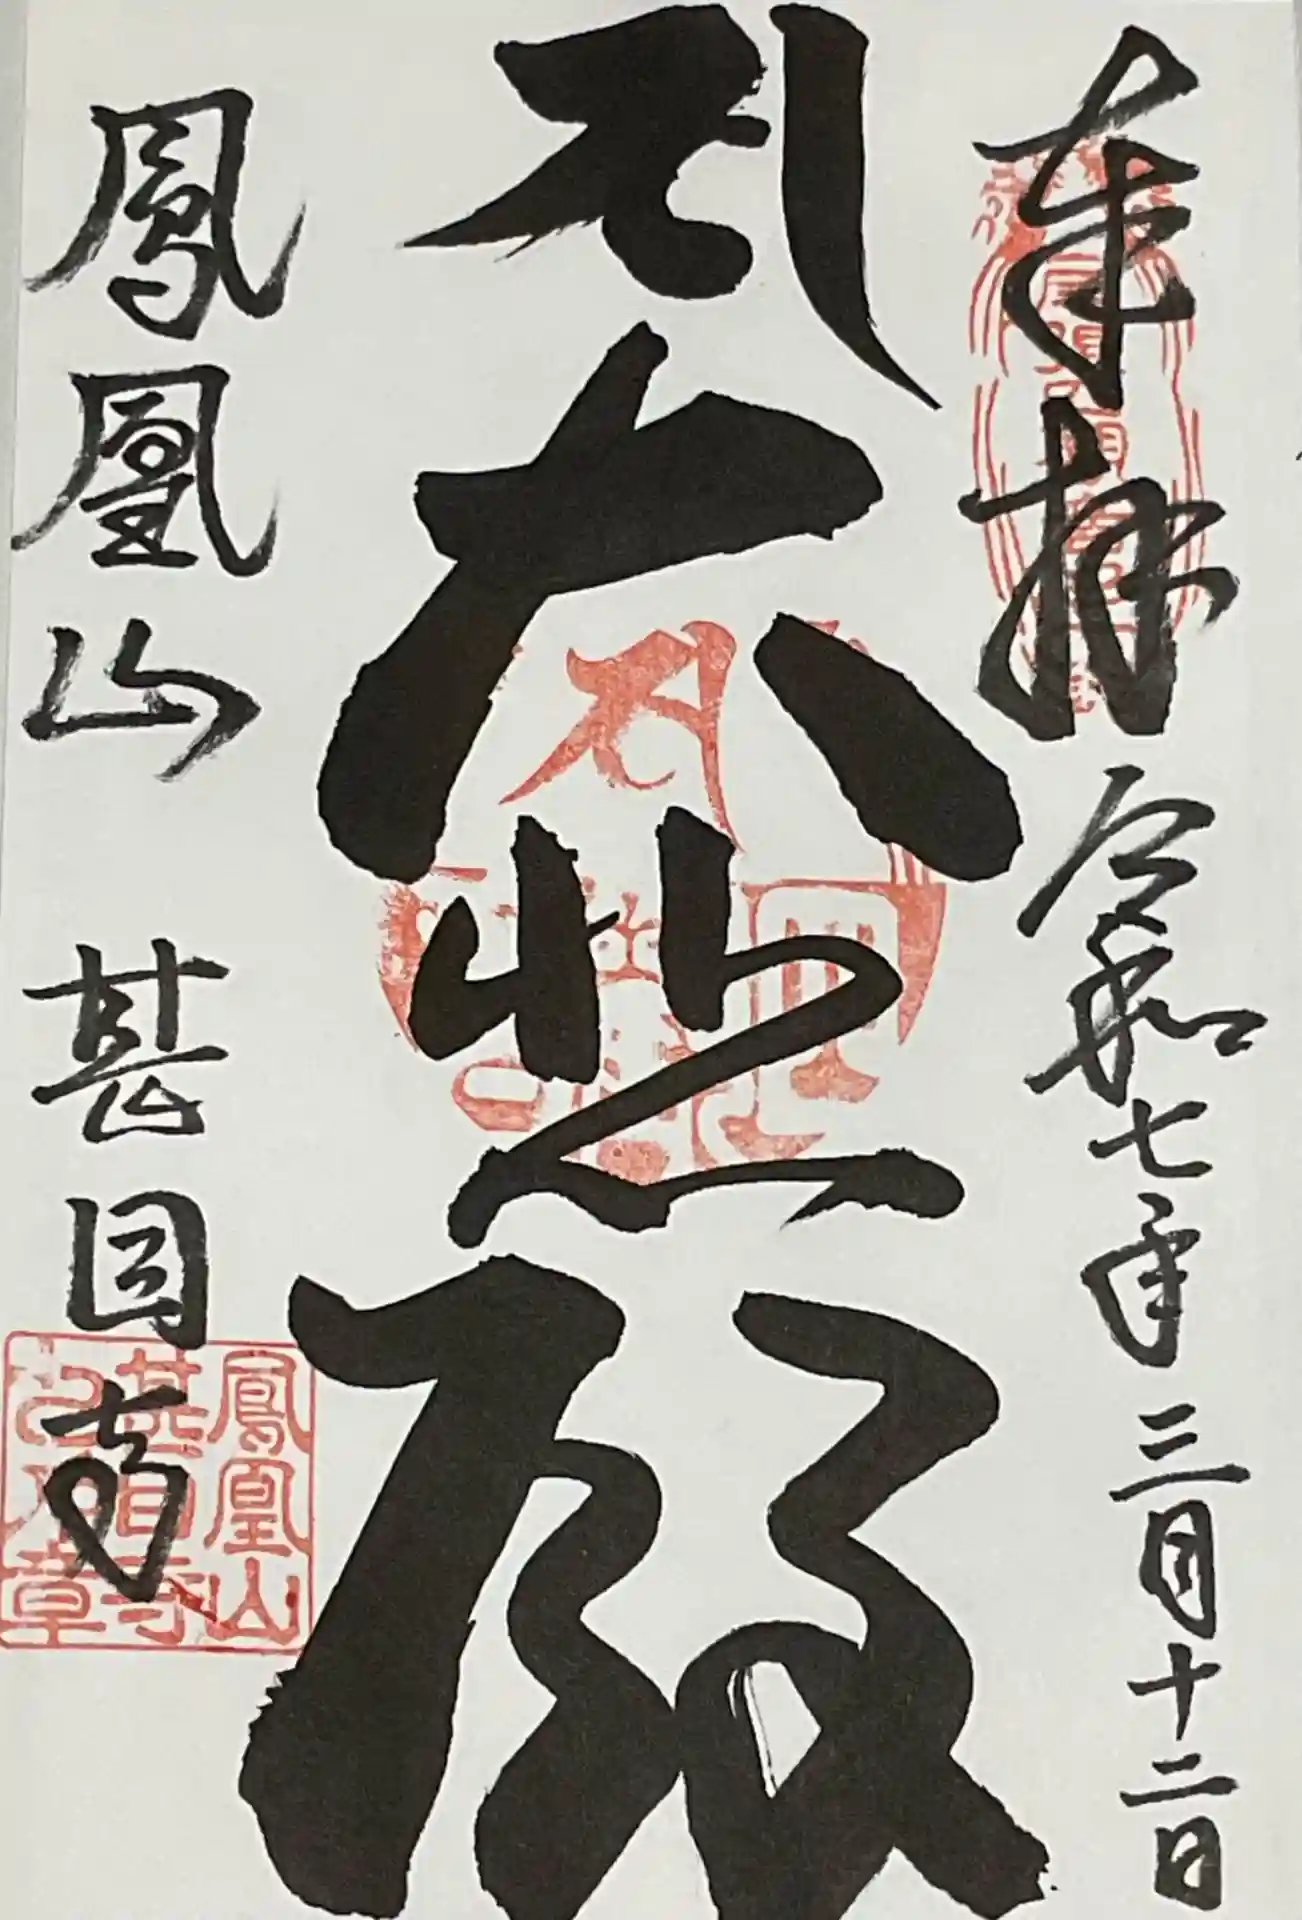 奉拝 令和七年三月十二日
大悲殿
鳳凰山 甚目寺
鳳凰山
甚目寺
之印章